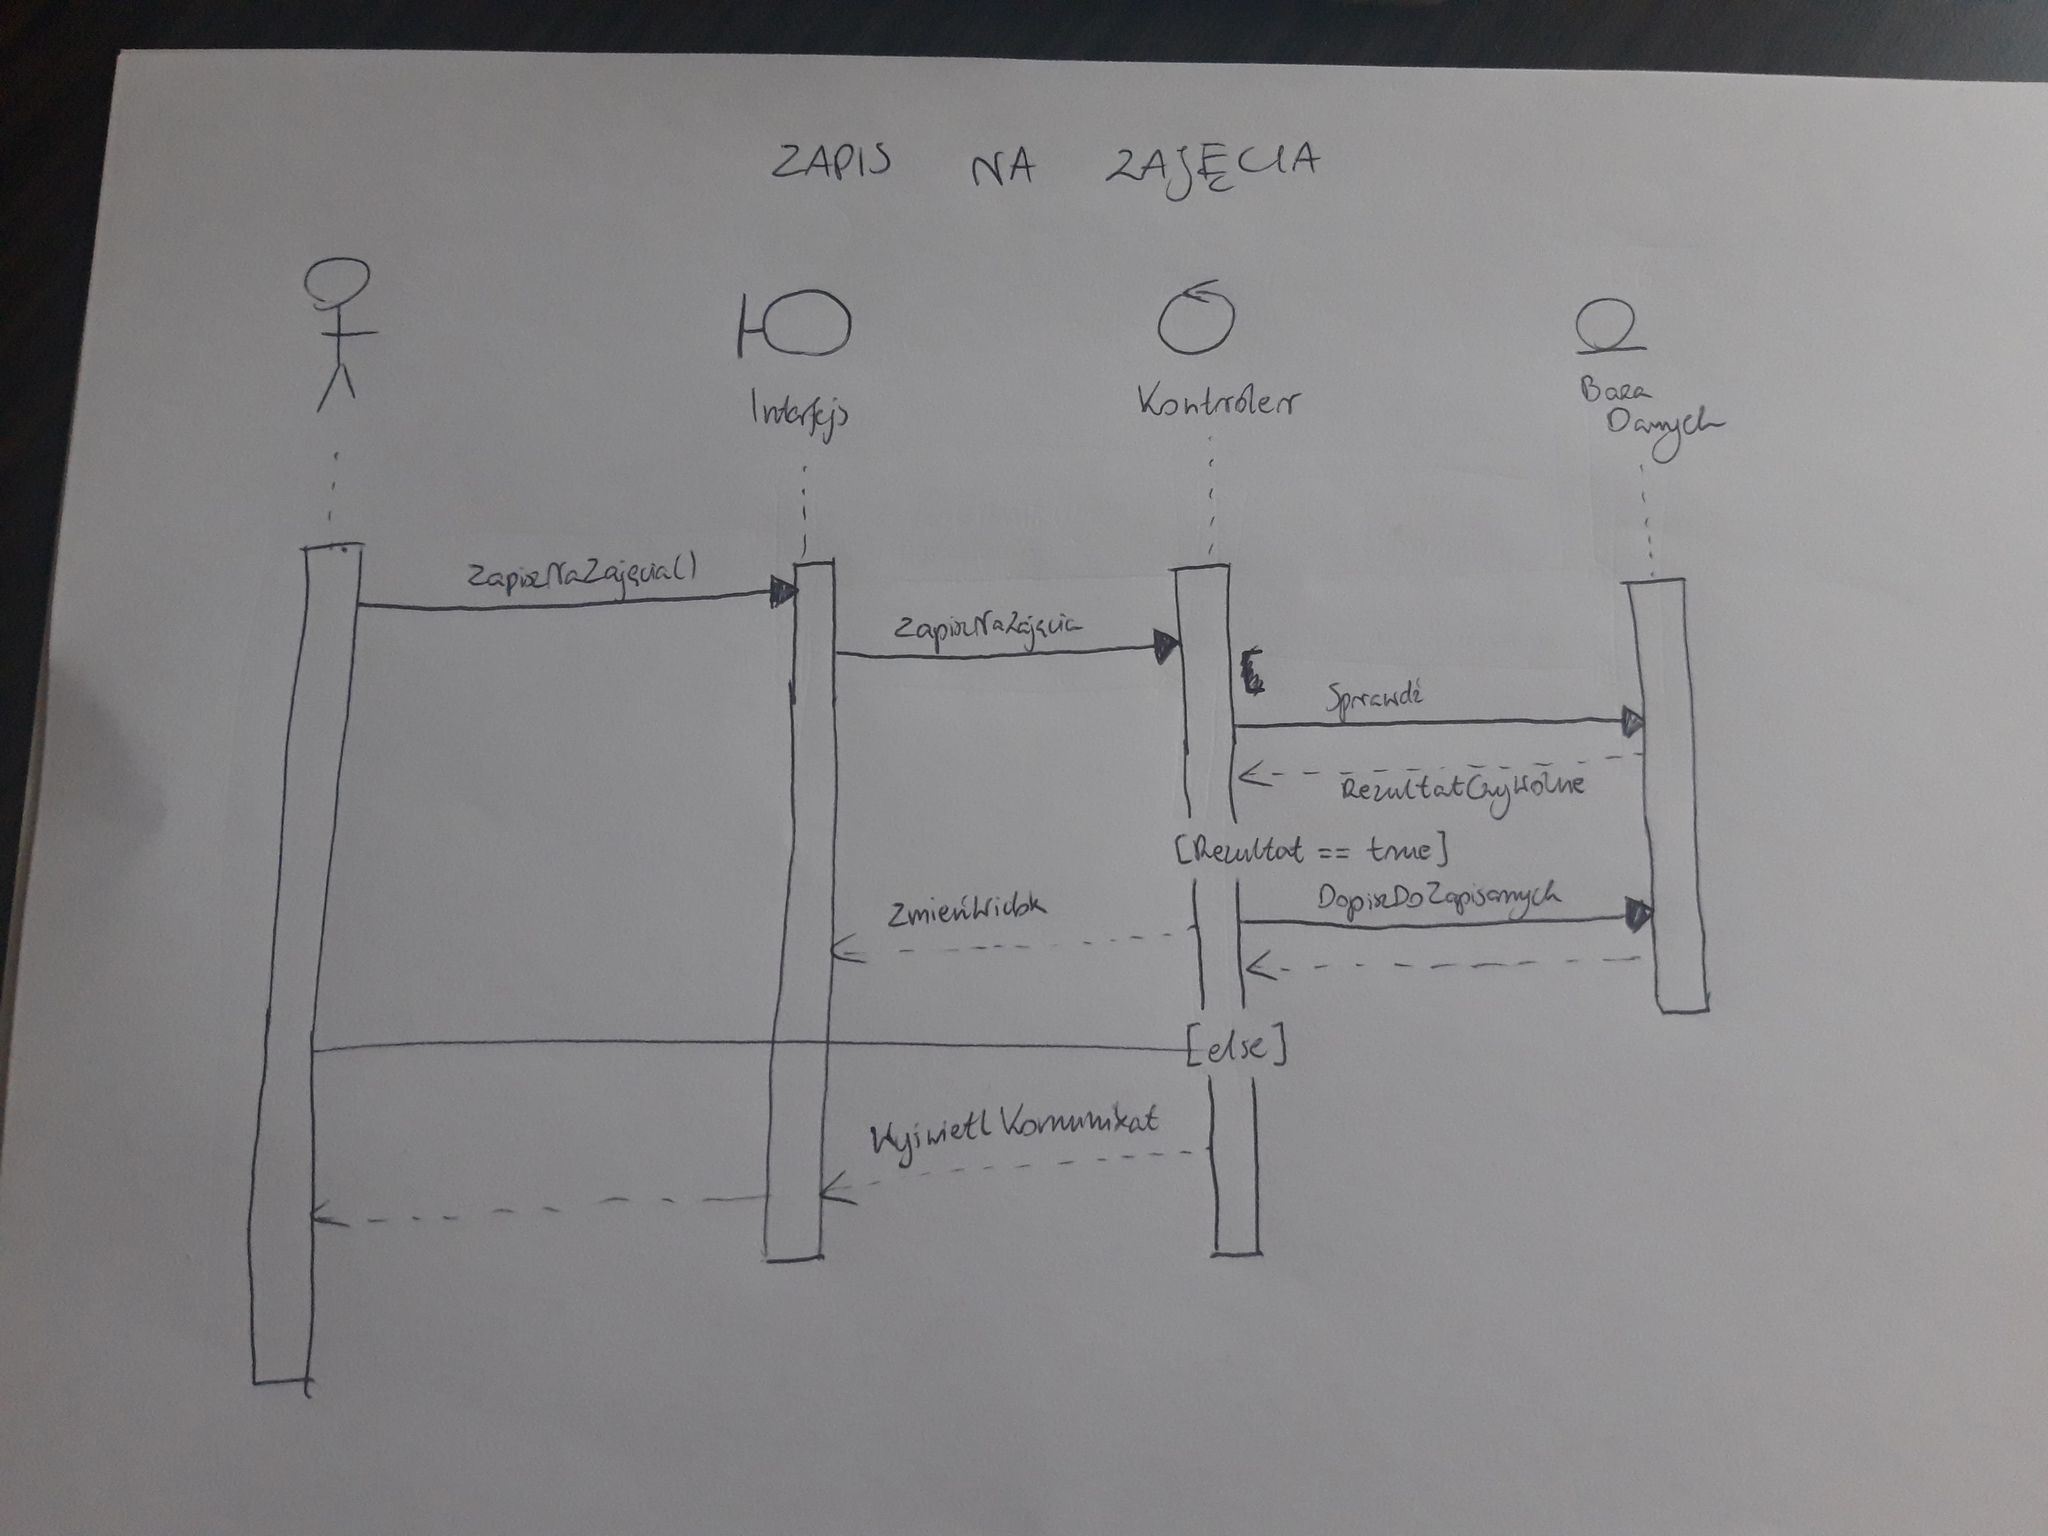 ZAPIS NA ZAJĘCIA
Interfejs
Kontroler
Baza
Danych
ZapiszNaZajęcia()
ZapiszNaZajęcia
Sprawdź
RezultatCzyWolne
[Rezultat == true]
DopiszDoZapisanych
ZmieńWidok
[else]
Wyświetl Komunikat